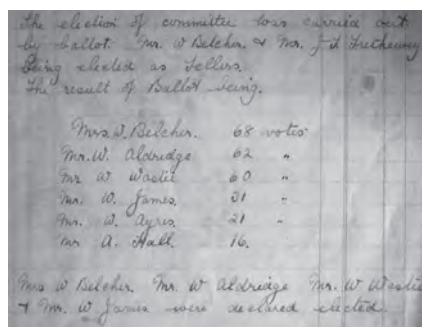 The election of committee was carried out
by ballot. Mr. W Belcher. & Mr. J T Trethewey
being elected as Tellers.
The result of Ballot being.
Mrs. W. Belcher. 68 votes
Mr. W. Aldridge 62 "
Mr W Wastie 60 "
Mr. W. James. 31 "
Mr. W. Ayres. 21 "
Mr A. Hall. 16.
Mrs W Belcher. Mr. W Aldridge Mr. W Wastie
& Mr. W James were declared elected.